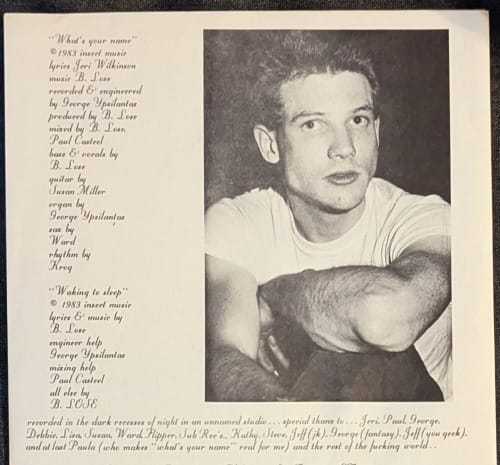 "What's your name"
©1983 insect music
lyrics Jeri Wilkinson
music B. Lose
recorded & engineered
by George Ypsilantas
produced by B. Lose
mixed by B. Lose,
Paul Casteel
bass & vocals by
B. Lose
guitar by
Susan Miller
organ by
George Ypsilantas
sax by
Ward
rhythm by
Krog
"Waking to sleep"
© 1983 insect music
lyrics & music by
B. Lose
engineer help
George Ypsilantas
mixing help
Paul Casteel
all else by
B. LOSE
recorded in the dark recesses of night in an unnamed studio... special thans to... Jeri, Paul, George,
Debbie, Lisa, Susan, Ward, Flipper, Sub Rec's., Kathy, Steve, Jeff (jk), George (fantasy), Jeff (you geek),
and at last Paula (who makes "what's your name" real for me) and the rest of the fucking world..